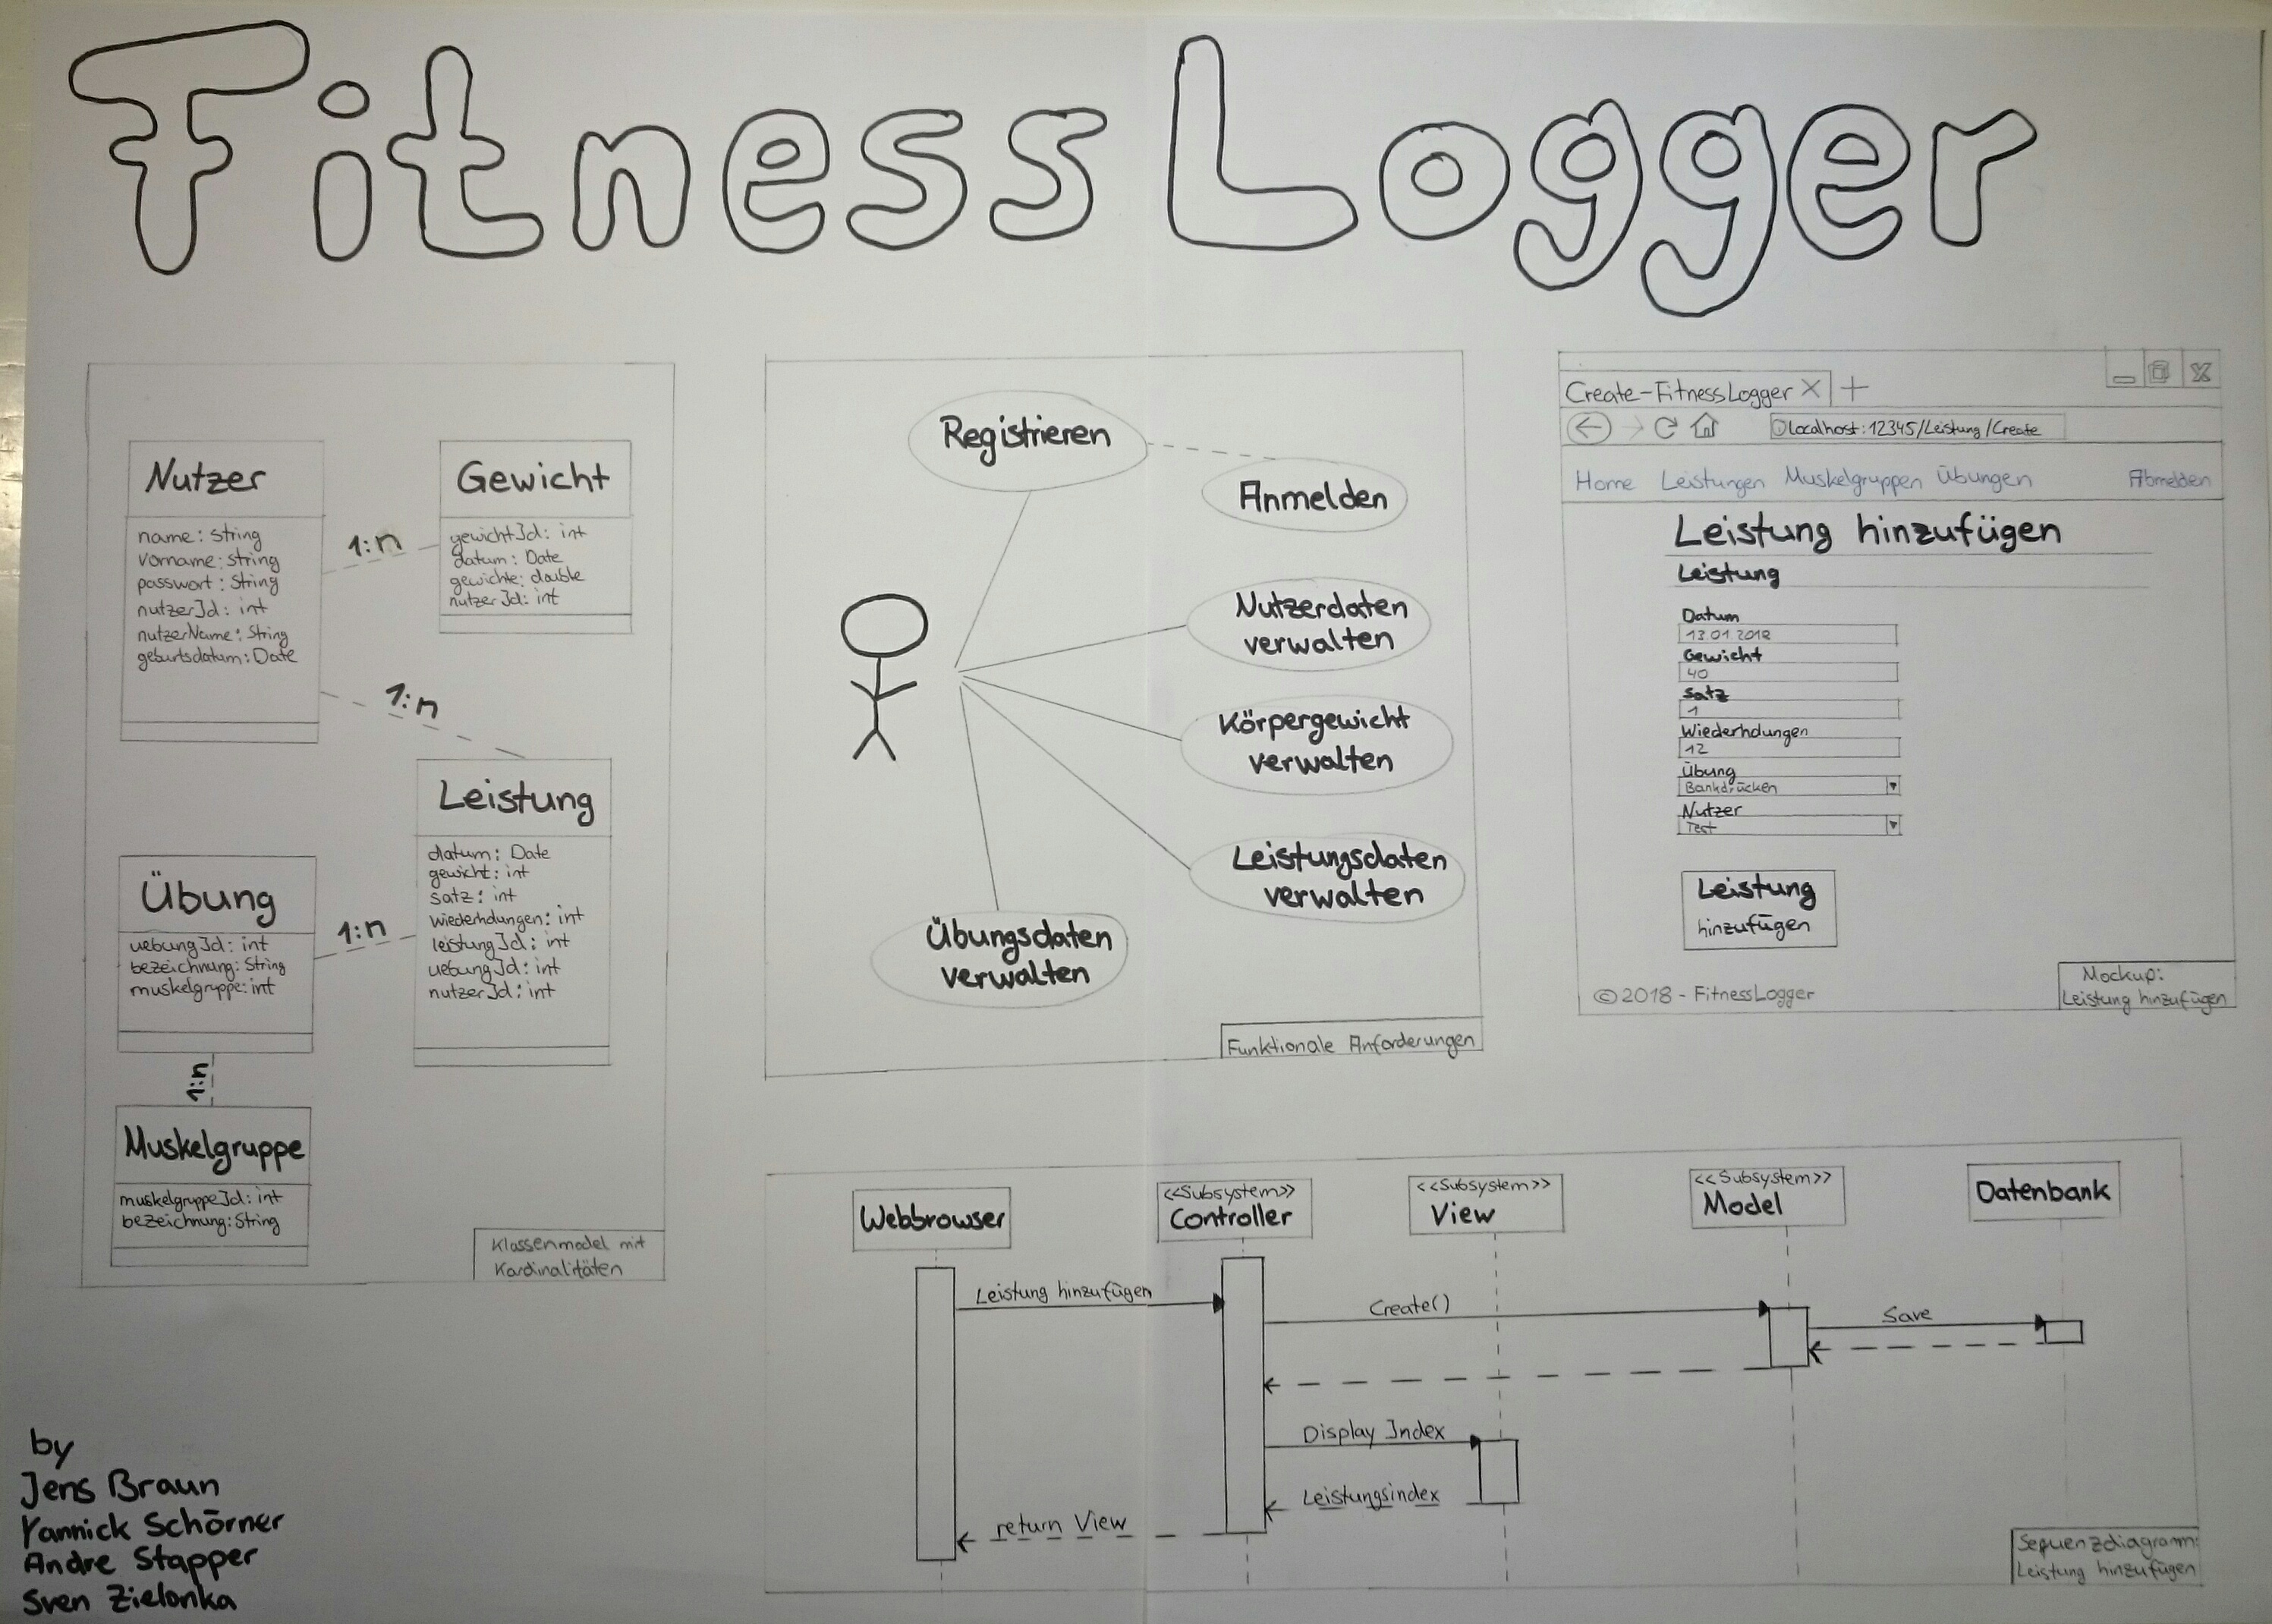 Fitness Logger
Nutzer
name: String
vorname: String
passwort: String
nutzerId: int
nutzerName: String
geburtsdatum: Date
1:n
Gewicht
gewichtId: int
datum: Date
gewichte: double
nutzerId: int
1:n
Leistung
datum: Date
gewicht: int
satz: int
wiederholungen: int
leistungId: int
uebungId: int
nutzerId: int
Übung
uebungId: int
bezeichnung: String
muskelgruppe: int
1:n
1:n
Muskelgruppe
muskelgruppeId: int
bezeichnung: String
Klassenmodel mit
Kardinalitäten
Registrieren
Anmelden
Nutzerdaten
verwalten
Körpergewicht
verwalten
Leistungsdaten
verwalten
Übungsdaten
verwalten
Funktionale Anforderungen
Create-FitnessLogger X +
localhost:12345/Leistung/Create
Home Leistungen Muskelgruppen Übungen Abmelden
Leistung hinzufügen
Leistung
Datum
13.01.2018
Gewicht
40
Satz
1
Wiederholungen
12
Übung
Bankdrücken
Nutzer
Test
Leistung
hinzufügen
©2018 - FitnessLogger
Mockup:
Leistung hinzufügen
Webbrowser
<<Subsystem>>
Controller
<<Subsystem>>
View
<<Subsystem>>
Model
Datenbank
Leistung hinzufügen
Create()
Save
Display Index
Leistungsindex
return View
Sequenzdiagramm:
Leistung hinzufügen
by
Jens Braun
Yannick Schörner
Andre Stapper
Sven Zielonka